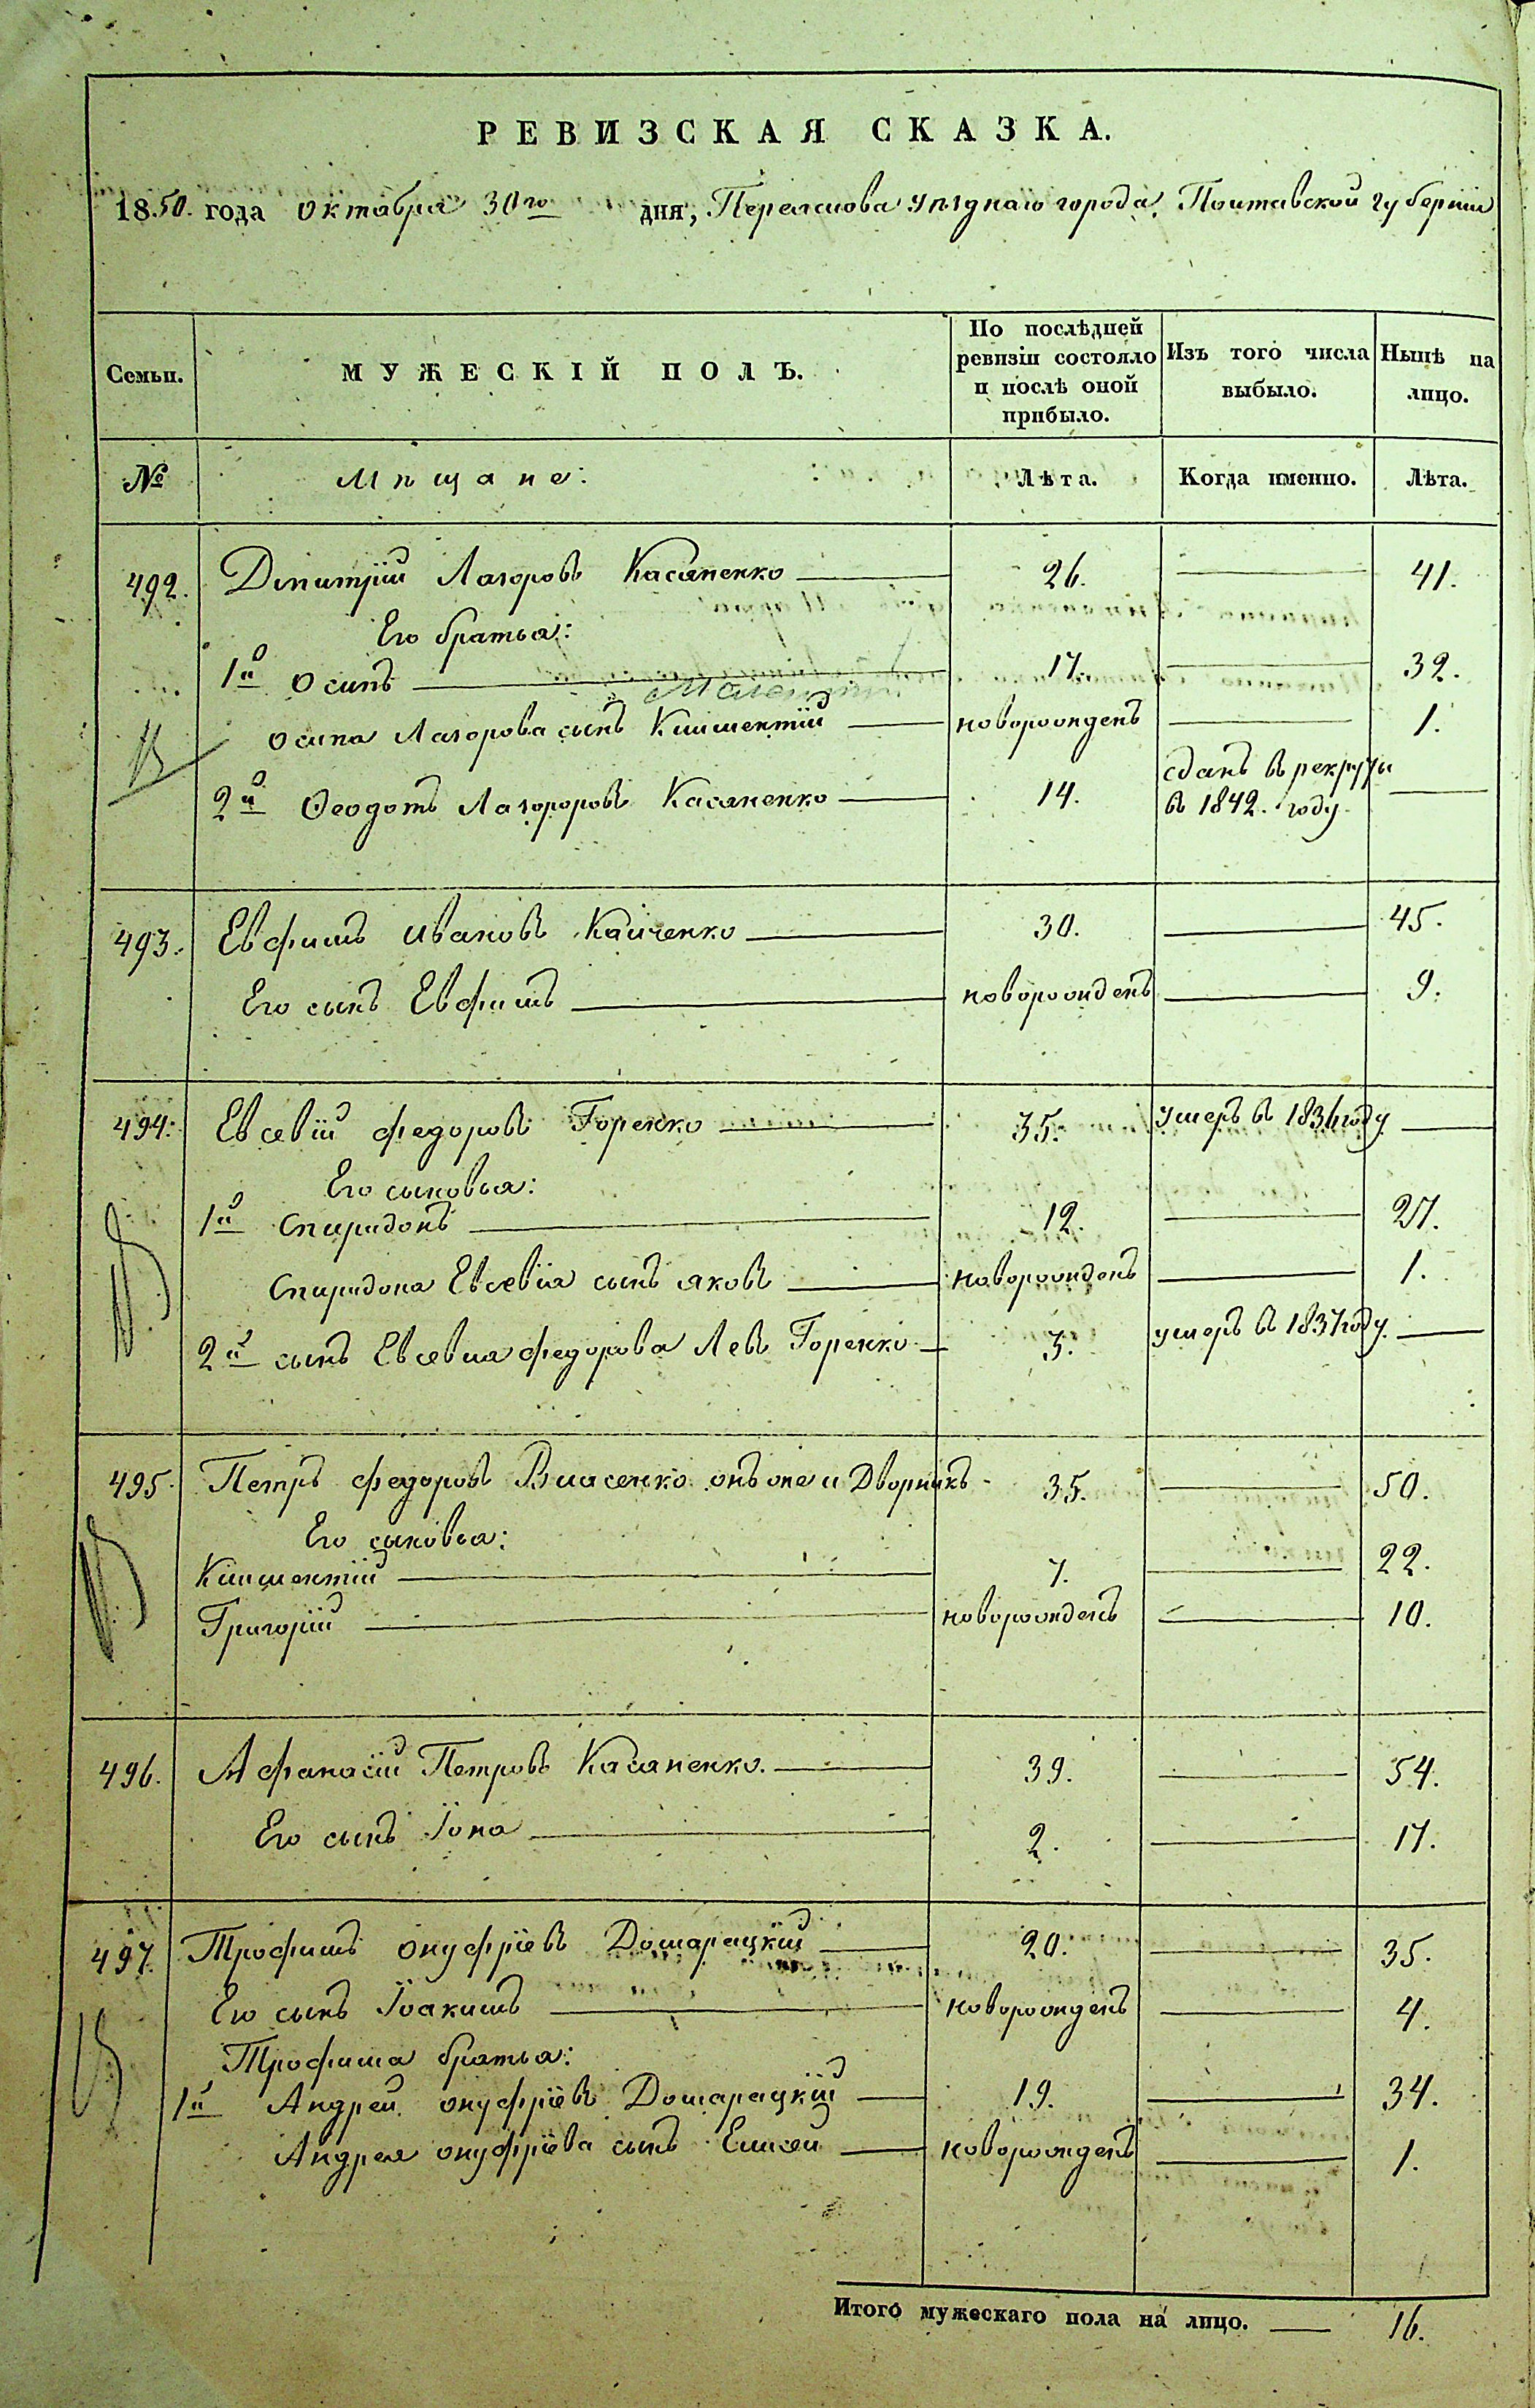 РЕВИЗСКАЯ СКАЗКА.
1850. года октября 30го дня, Переяслова уѣзднаго города, Полтавской губерніи
Семьи. МУЖЕСКІЙ ПОЛЪ. По послѣдней ревизіи состояло и послѣ оной прибыло. Изъ того числа выбыло. Нынѣ на лицо.
№ Мѣщане: Лѣта. Когда именно. Лѣта.
492. Дмитрій Лазоровъ Касяненко 26. 41.
Его братья:
1й Осипъ 17. 32.
Осипа Лазорова сынъ Климентій новорожденъ 1.
2й Феодотъ Лазороровъ Касяненко 14. сданъ в рекруты
в 1842. году.
493. Евфимъ Ивановъ Каиченко 30. 45.
Его сынъ Евфимъ новорожденъ 9.
494. Евсевій Федоровъ Горенко 35. умеръ в 1836 году
Его сыновья:
1й Спиридонъ 12. 27.
Спиридона Евсевія сынъ Яковъ новорожденъ 1.
2й сынъ Евсевия Федорова Левъ Горенко 3. умеръ в 1837 году.
495. Петръ Федоровъ Власенко онъ же и Дворникъ 35. 50.
Его сыновья:
Климентій 7. 22.
Григорій новорожденъ 10.
496. Афанасій Петровъ Касяненко. 39. 54.
Его сынъ Іона 2. 17.
497. Трофимъ Онуфріевъ Домарацкій 20. 35.
Его сынъ Іоакимъ новорожденъ 4.
Трофима братья:
1й Андрей Онуфріевъ Домарацкій 19. 34.
Андрея Онуфріева сынъ Елисей новорожденъ 1.
Итого мужескаго пола на лицо. 16.